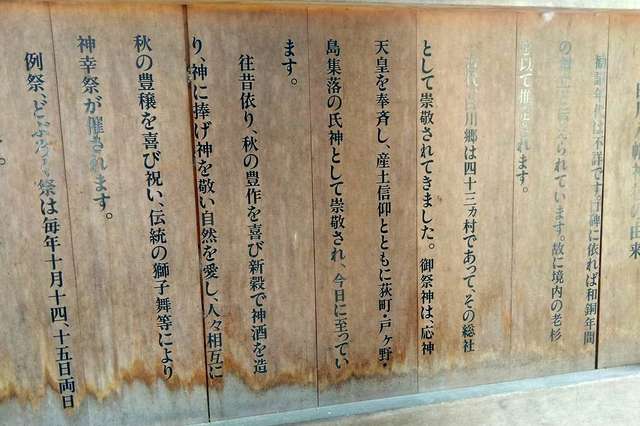 八幡神社由来
勧請年代は不詳ですが社碑に依れば和銅年間
の創立と伝えられています。故に境内の老杉
を以て推定されます。
古来、白川郷は四十三ヵ村であって、その総社
として崇敬されてきました。御祭神は、応神
天皇を奉斉し、産土信仰とともに荻町・戸ヶ野・
島集落の氏神として崇敬され、今日に至ってい
ます。
往昔依り、秋の豊作を喜び新穀で神酒を造
り、神に捧げ神を敬い自然を愛し、人々相互に
秋の豊穣を喜び祝い、伝統の獅子舞等により
神幸祭が催されます。
例祭、どぶろく祭は毎年十月十四、十五日両日